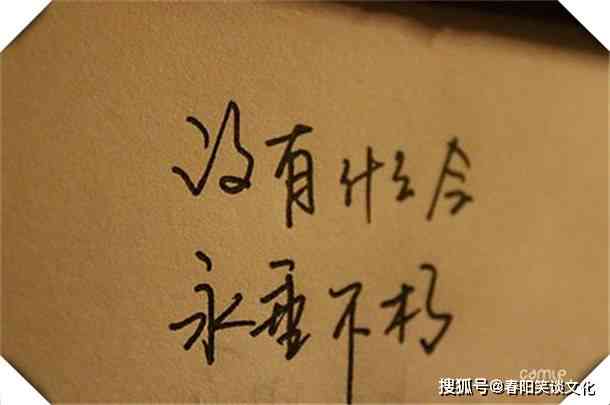 没有什么会
永垂不朽
camLP
搜狐号@春阳笑谈文化